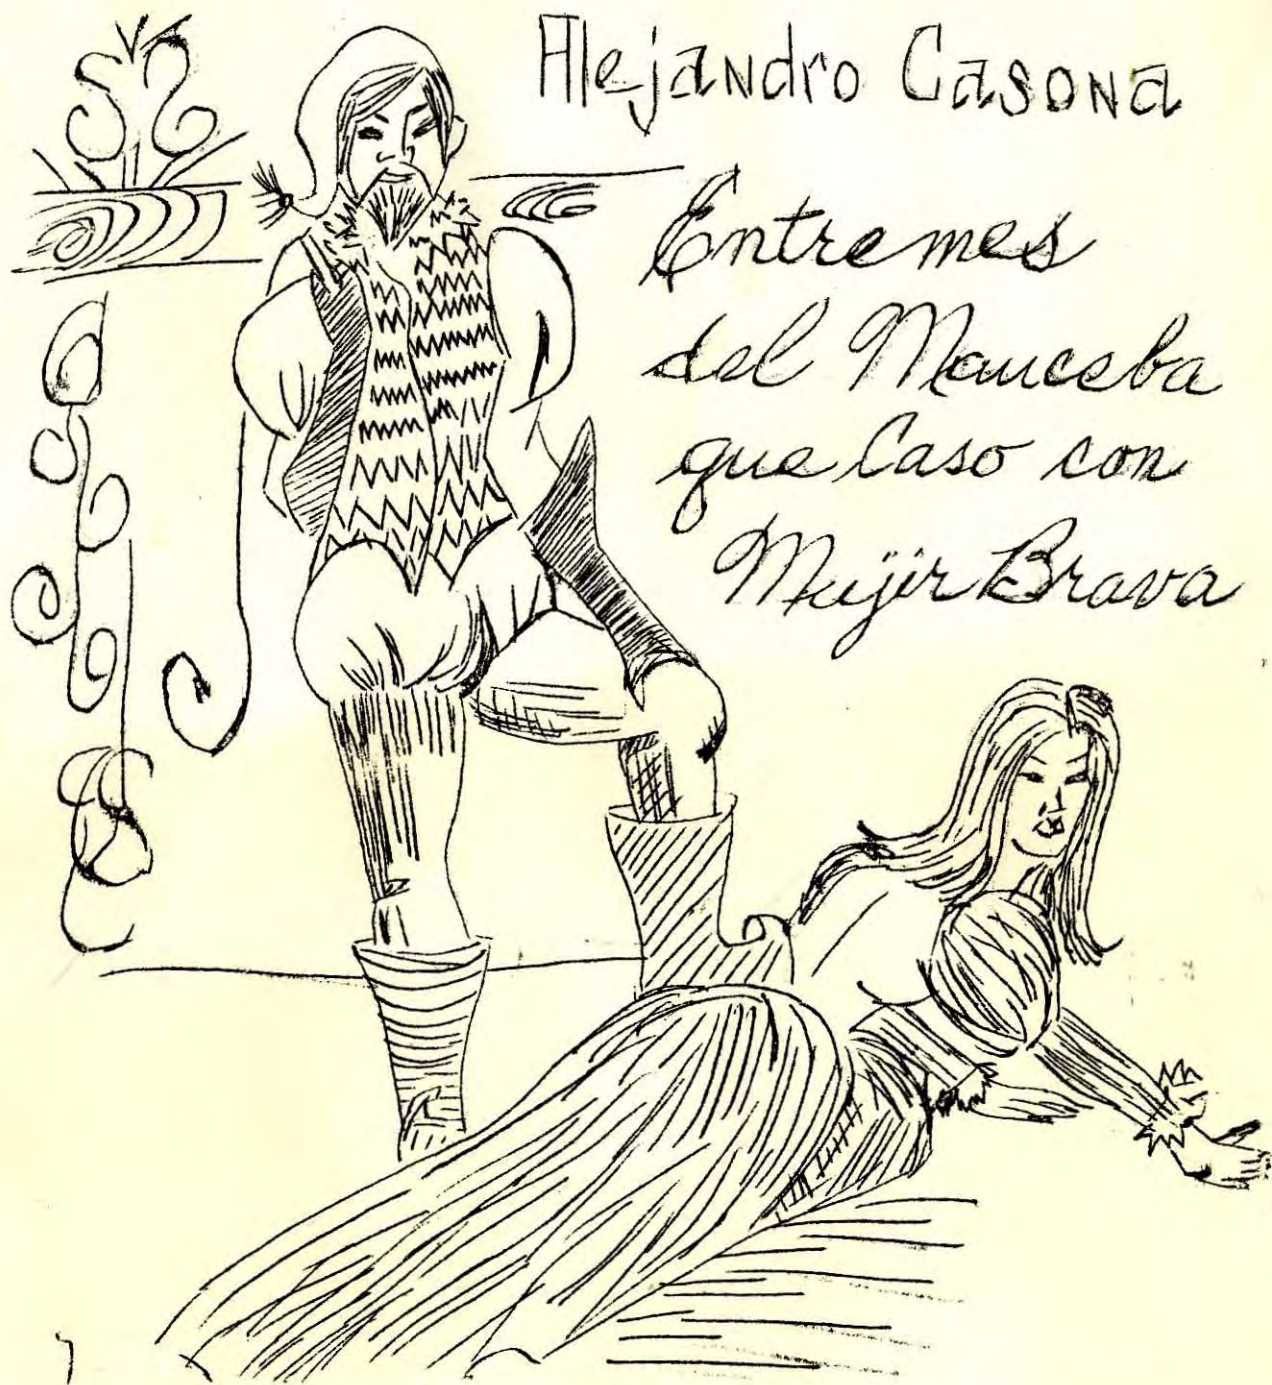 Alejandro Casona
Entremes
del Manceba
que Caso con
Mujir Brava